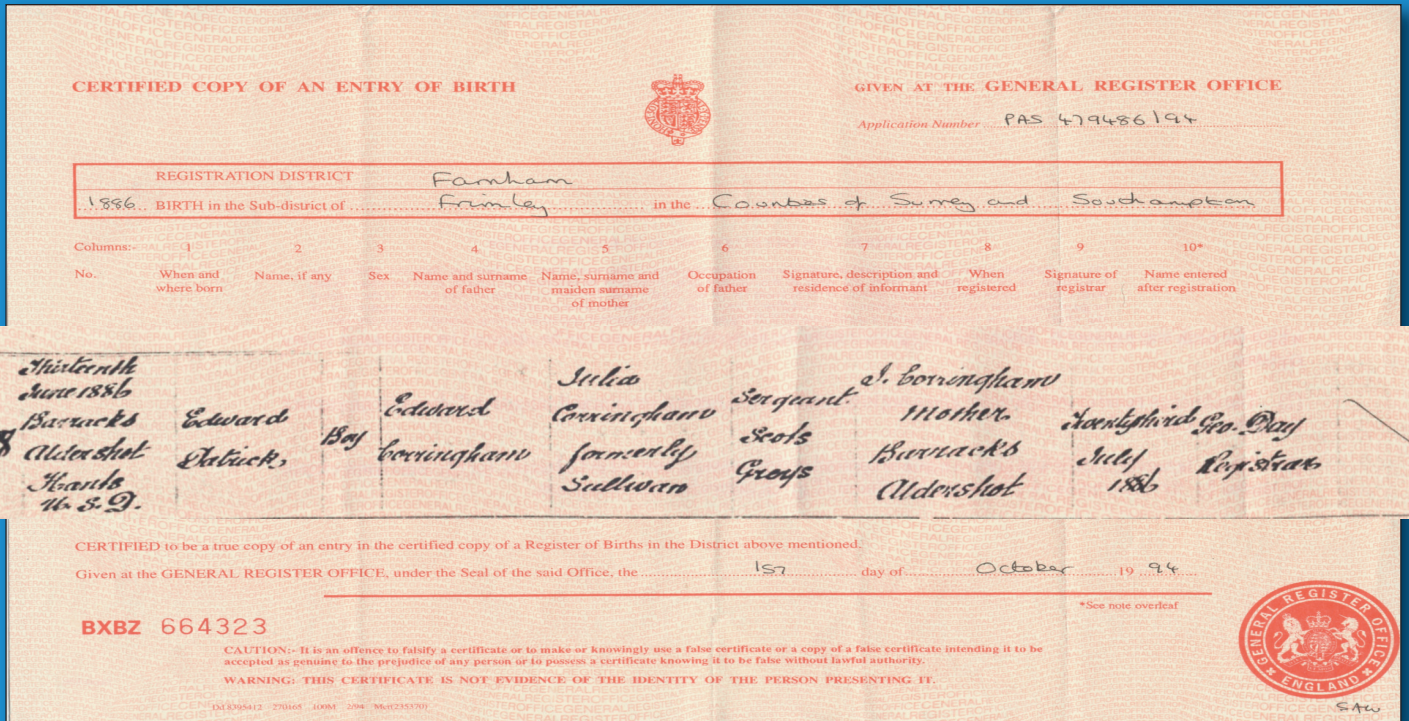 CERTIFIED COPY OF AN ENTRY OF BIRTH
GIVEN AT THE GENERAL REGISTER OFFICE
Application Number PAS 479486/94
REGISTRATION DISTRICT Farnham
1886 BIRTH in the Sub-district of Frimley in the Counties of Surrey and Southampton
Columns:- 1 2 3 4 5 6 7 8 9 10*
No. When and where born Name, if any Sex Name and surname of father Name, surname and maiden surname of mother Occupation of father Signature, description and residence of informant When registered Signature of registrar Name entered after registration
Thirteenth
June 1886
Barracks
Aldershot
Hants
U. S. D.
Edward
Patrick
Boy
Edward
Corringham
Julia
Corringham
formerly
Sullivan
Sergeant
Scots
Greys
J. Corringham
Mother
Barracks
Aldershot
Twentythird
July
1886
Geo. Day
Registrar
CERTIFIED to be a true copy of an entry in the certified copy of a Register of Births in the District above mentioned.
Given at the GENERAL REGISTER OFFICE, under the Seal of the said Office, the 1st day of October 19 94
*See note overleaf
BXBZ 664323
CAUTION:- It is an offence to falsify a certificate or to make or knowingly use a false certificate or a copy of a false certificate intending it to be
accepted as genuine to the prejudice of any person or to possess a certificate knowing it to be false without lawful authority.
WARNING: THIS CERTIFICATE IS NOT EVIDENCE OF THE IDENTITY OF THE PERSON PRESENTING IT.
GENERAL REGISTER OFFICE
ENGLAND